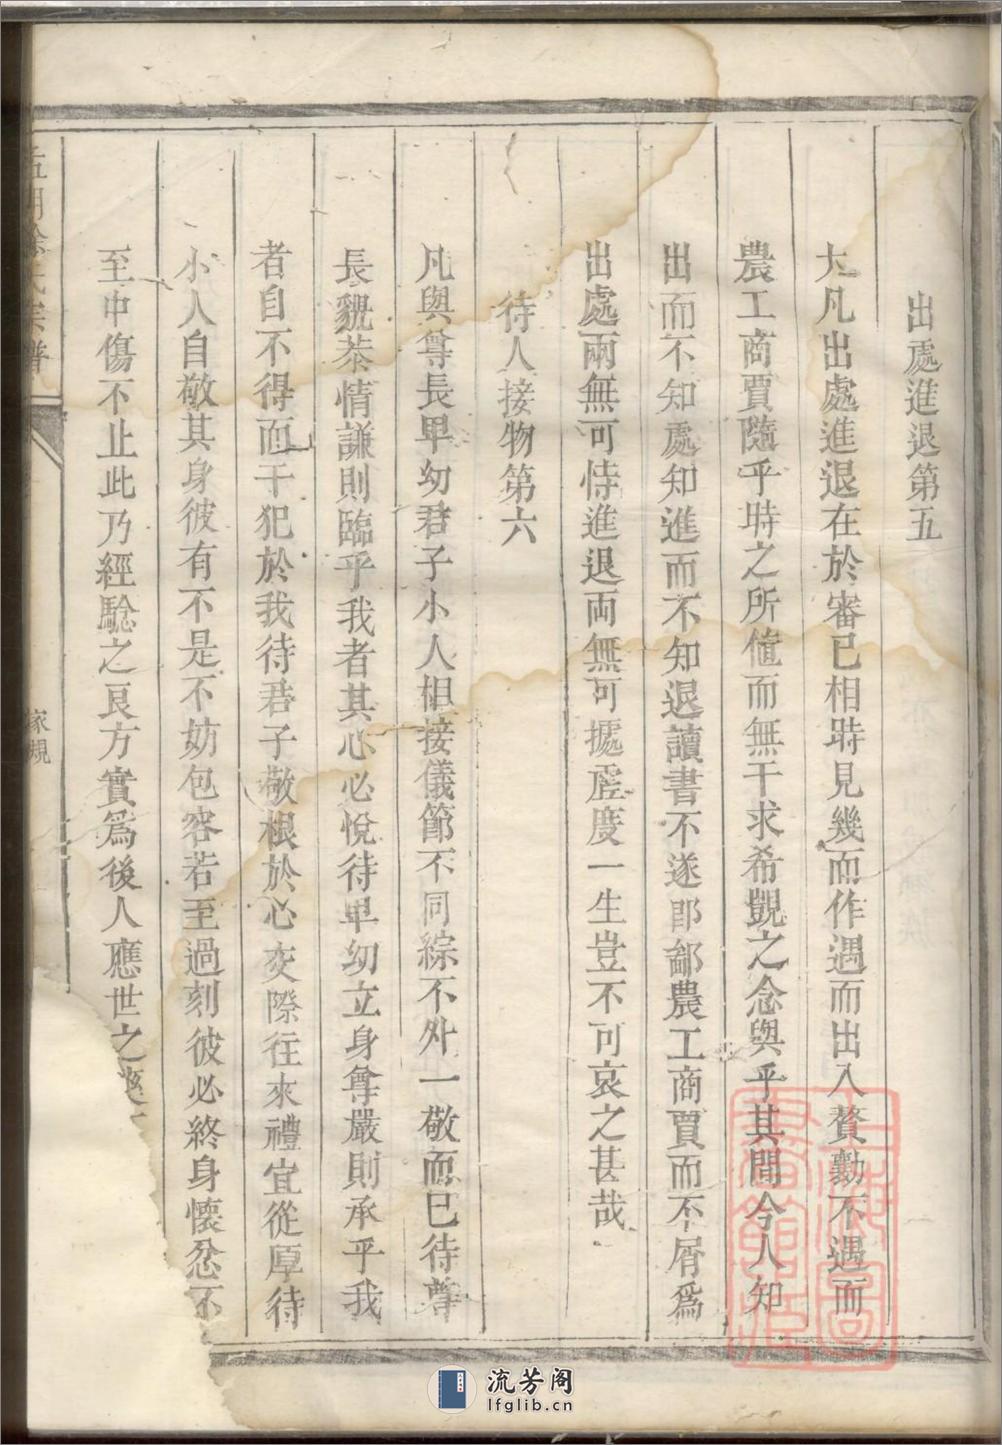 出處進退第五
大凡出處進退在於審已相時見幾而作遇而出入贊勷不遇而
農工商賈隨乎時之所值而無干求希覬之念與乎其間今人知
出而不知處知進而不知退讀書不遂郎鄙農工商賈而不屑爲
出處兩無可恃進退両無可據虗度一生豈不可哀之甚哉
待人接物第六
凡與尊長卑幼君子小人相接儀節不同綜不外一敬而巳待尊
長貌恭情謙則臨乎我者其心必悅待卑幼立身尊嚴則承乎我
者自不得而干犯於我待君子敬根於心交際往來禮宜從厚待
小人自敬其身彼有不是不妨包容若至過刻彼必終身懷忿不
至中傷不止此乃經騐之良方實爲後人應世之
氏宗譜
家規
流芳阁
lfglib.cn